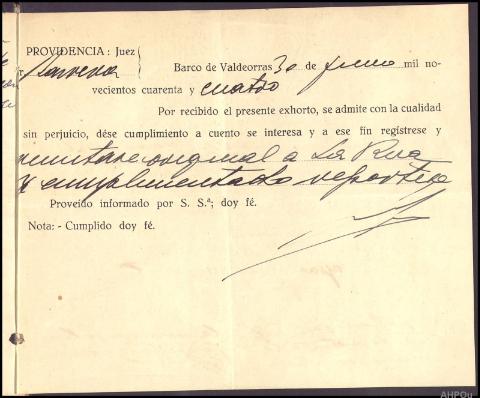 PROVIDENCIA: Juez
Barco de Valdeorras 30 de mil no-
vecientos cuarenta y cuatro
Por recibido el presente exhorto, se admite con la cualidad
sin perjuicio, dése cumplimiento a cuento se interesa y a ese fin regístrese y
original a La Rua
y cumplimentado
Proveído informado por S. S.ª; doy fé.
Nota: - Cumplido doy fé.
AHPOu